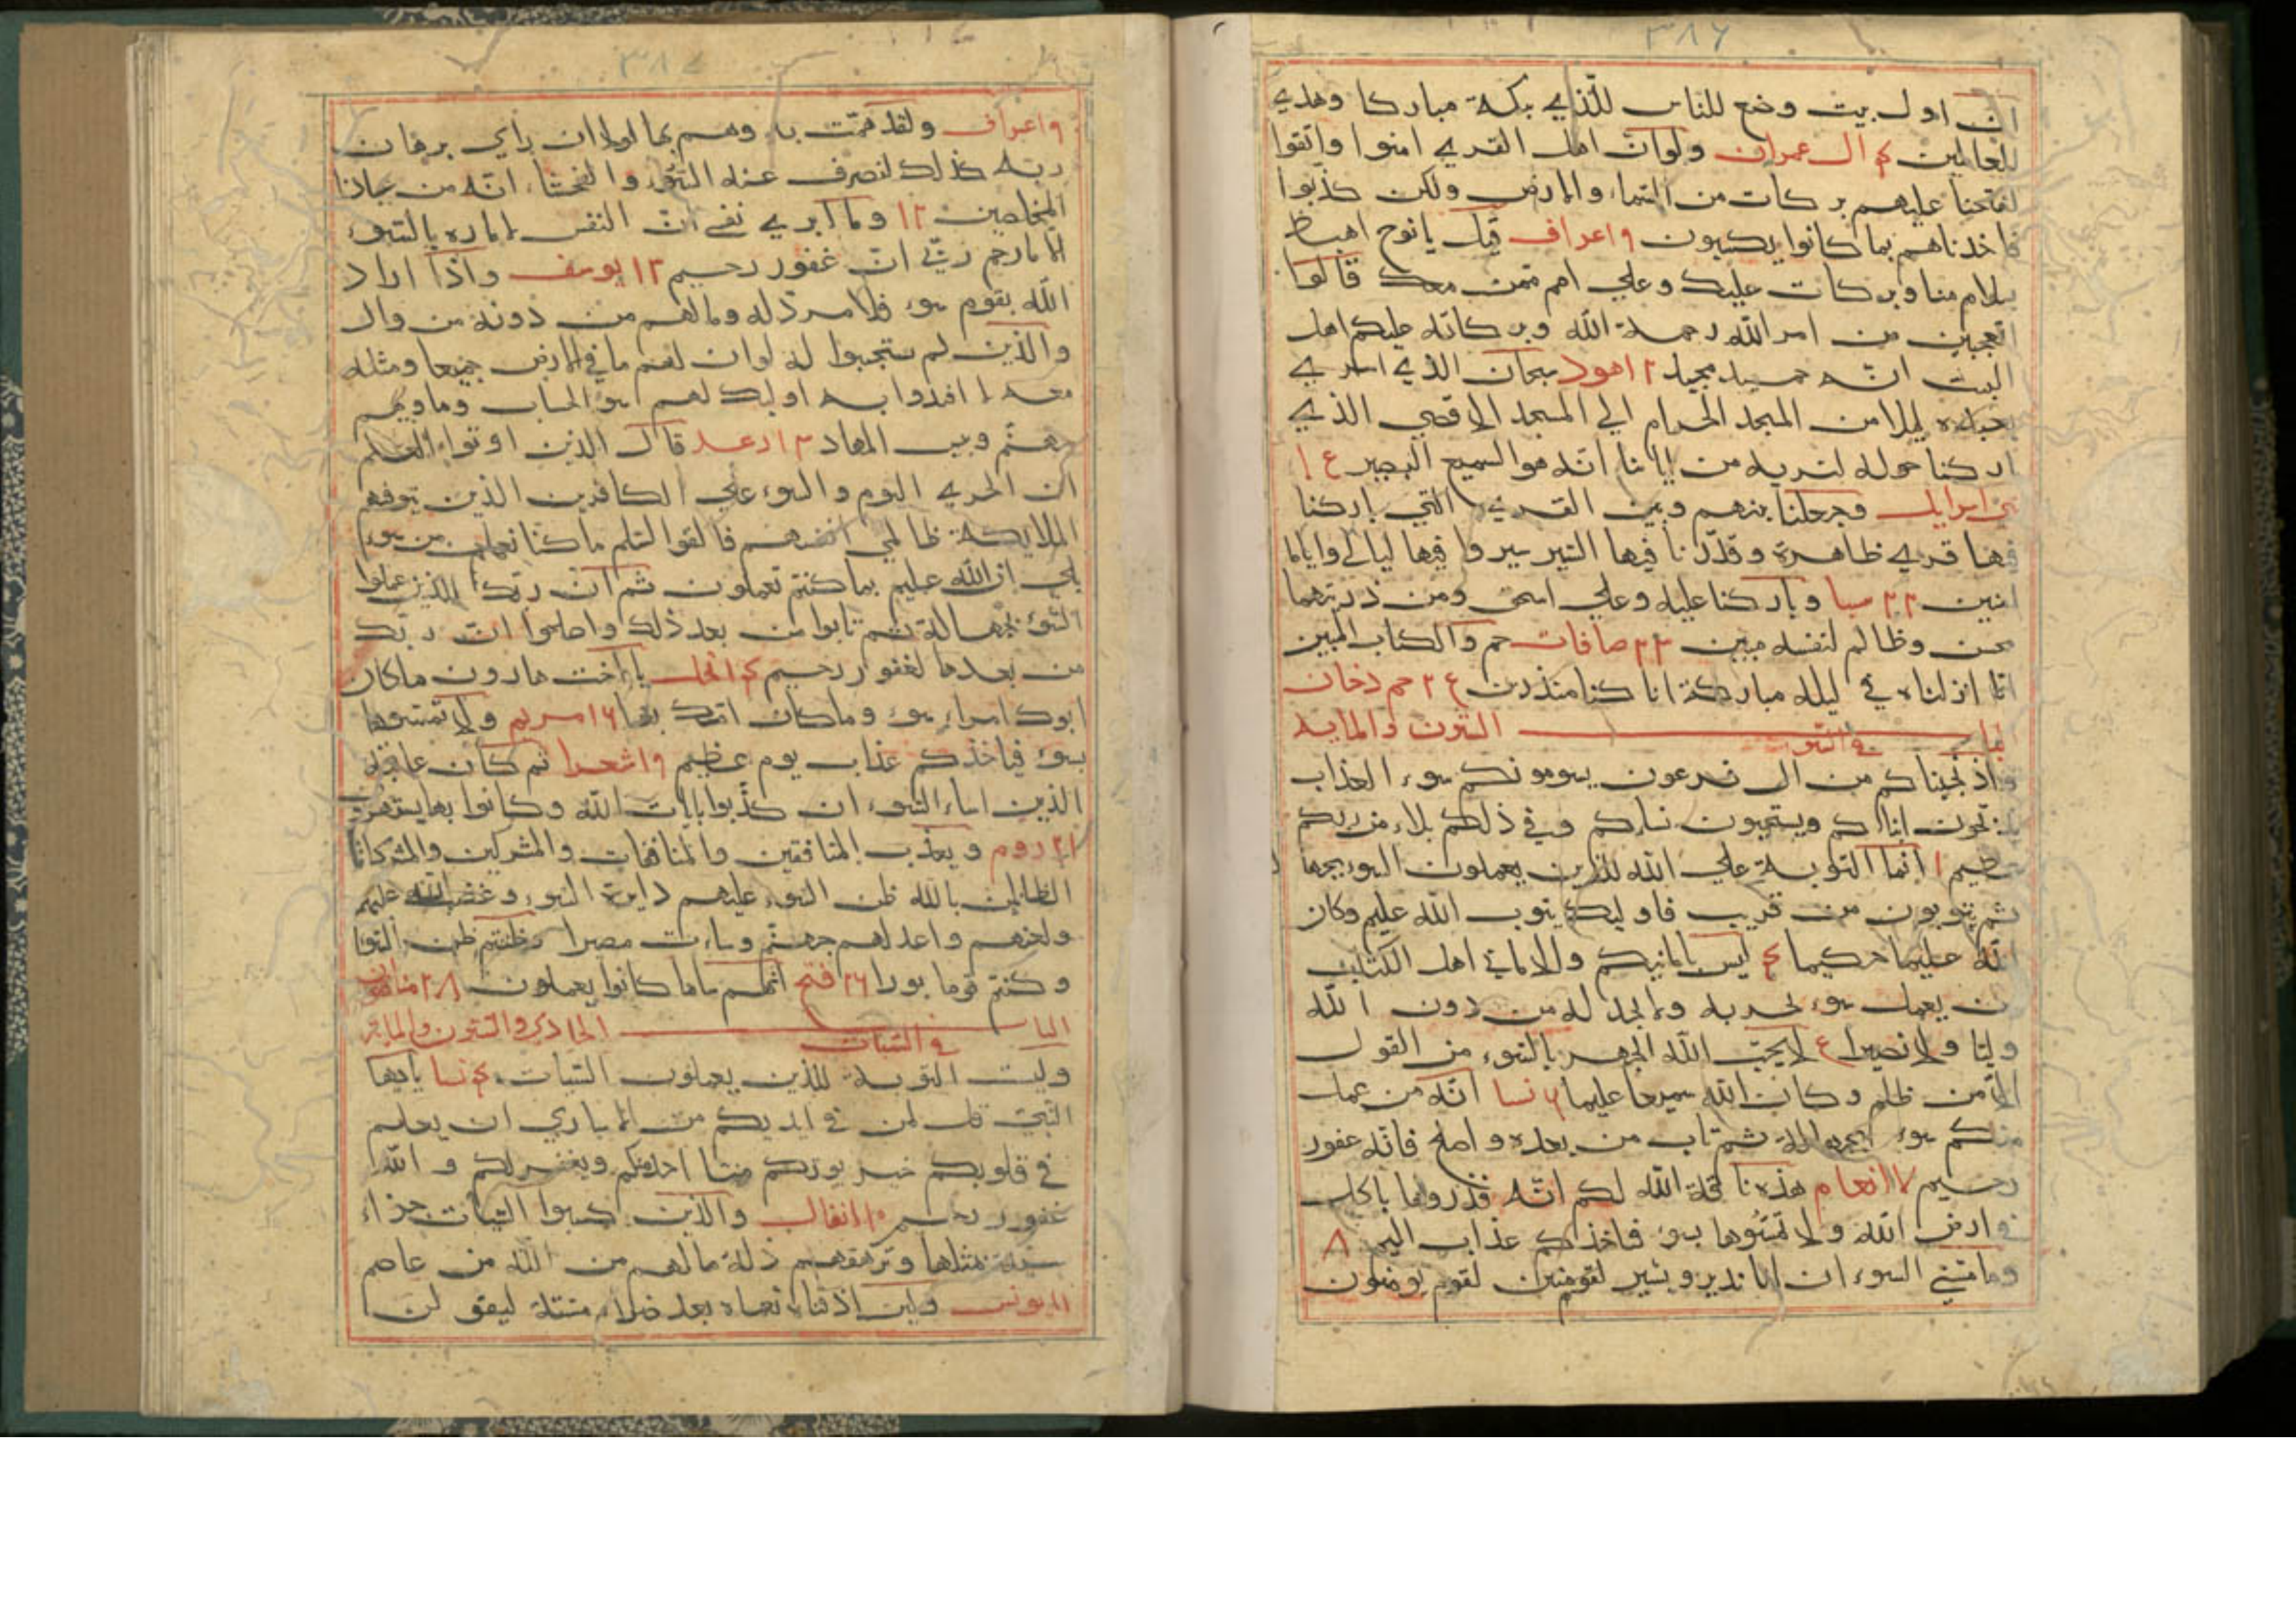 ٣٨٦
ان اول بيت وضع للناس للذي ببكة مباركا وهدي
للعالمين ٤ ال عمران ولو ان اهل القري امنوا واتقوا
لفتحنا عليهم بركات من السماء والارض ولكن كذبوا
فاخذناهم بما كانوا يكسبون ٩ اعراف قيل يا نوح اهبط
بسلام منا وبركات عليك وعلي امم ممن معك قالوا
اتعجبين من امر الله رحمة الله وبركاته عليكم اهل
البيت انه حميد مجيد ١٢ هود سبحان الذي اسري
بعبده ليلا من المسجد الحرام الي المسجد الاقصي الذي
باركنا حوله لنريه من اياتنا انه هو السميع البصير ١٤
بني اسرايل وجعلنا بينهم وبين القري التي باركنا
فيها قري ظاهرة وقدرنا فيها السير سيروا فيها ليالي واياما
امنين ٢٢ سبا وباركنا عليه وعلي اسحق ومن ذريتهما
محسن وظالم لنفسه مبين ٢٣ صافات حم والكتاب المبين
انا انزلناه في ليلة مباركة انا كنا منذرين ٢٤ حم دخان
الباب الستون والمايه
في السوء
واذ نجيناكم من ال فرعون يسومونكم سوء العذاب
يذبحون ابناكم ويستحيون نساكم وفي ذلكم بلاء من ربكم
عظيم ١ انما التوبة علي الله للذين يعملون السوء بجهالة
ثم يتوبون من قريب فاوليك يتوب الله عليهم وكان
الله عليما حكيما ٤ ليس بامانيكم ولا اماني اهل الكتاب
من يعمل سوء يجز به ولا يجد له من دون الله
وليا ولا نصيرا ٤ لا يحب الله الجهر بالسوء من القول
الا من ظلم وكان الله سميعا عليما ٦ نسا انه من عمل
منكم سوء بجهالة ثم تاب من بعده واصلح فانه غفور
رحيم ٧ انعام هذه ناقة الله لكم ايه فذروها تاكل
في ارض الله ولا تمسوها بسوء فياخذكم عذاب اليم ٨
وما مسني السوء ان انا الا نذير وبشير لقوم يومنون
٣٨٧
٩ اعراف ولقد همت به وهم بها لولا ان راي برهان
ربه كذلك لنصرف عنه السوء والفحشاء انه من عبادنا
المخلصين ١٢ وما ابري نفسي ان النفس لامارة بالسوء
الا ما رحم ربي ان ربي غفور رحيم ١٣ يوسف واذا اراد
الله بقوم سوء فلا مرد له وما لهم من دونه من وال
والذين لم يستجيبوا له لو ان لهم ما في الارض جميعا ومثله
معه لا افتدوا به اوليك لهم سوء الحساب وماويهم
جهنم وبيس المهاد ١٣ رعد قال الذين اوتوا العلم
ان الخزي اليوم والسوء علي الكافرين الذين تتوفهم
الملايكة ظالمي انفسهم فالقوا السلم ما كنا نعمل من سوء
بلي ان الله عليم بما كنتم تعملون ثم ان ربك للذين عملوا
السوء بجهالة ثم تابوا من بعد ذلك واصلحوا ان ربك
من بعدها لغفور رحيم ١٤ نحل يا اخت هارون ما كان
ابوك امراء سوء وما كانت امك بغيا ١٦ مريم ولا تمسوها
بسوء فياخذكم عذاب يوم عظيم ١٩ شعرا ثم كان عاقبة
الذين اساء السوء ان كذبوا بايات الله وكانوا بها يستهزؤن
٢١ روم ويعذب المنافقين والمنافقات والمشركين والمشركات
الظانين بالله ظن السوء عليهم دايرة السوء وغضب الله عليهم
ولعنهم واعد لهم جهنم وساءت مصيرا وظننتم ظن السوء
وكنتم قوما بورا ٢٦ فتح انهم ساء ما كانوا يعملون ٢٨ منافقون
الباب الحادي والستون والمايه
في السيات
وليست التوبة للذين يعملون السيات ٤ نسا يا ايها
النبي قل لمن في ايديكم من الاساري ان يعلم
في قلوبكم خير يوتكم مما اخذ منكم ويغفر لكم والله
غفور رحيم ١٠ انفال والذين كسبوا السيات جزاء
سيئة بمثلها وترهقهم ذلة ما لهم من الله من عاصم
١١ يونس ولين اذقناه نعماء بعد ضراء مسته ليقولن